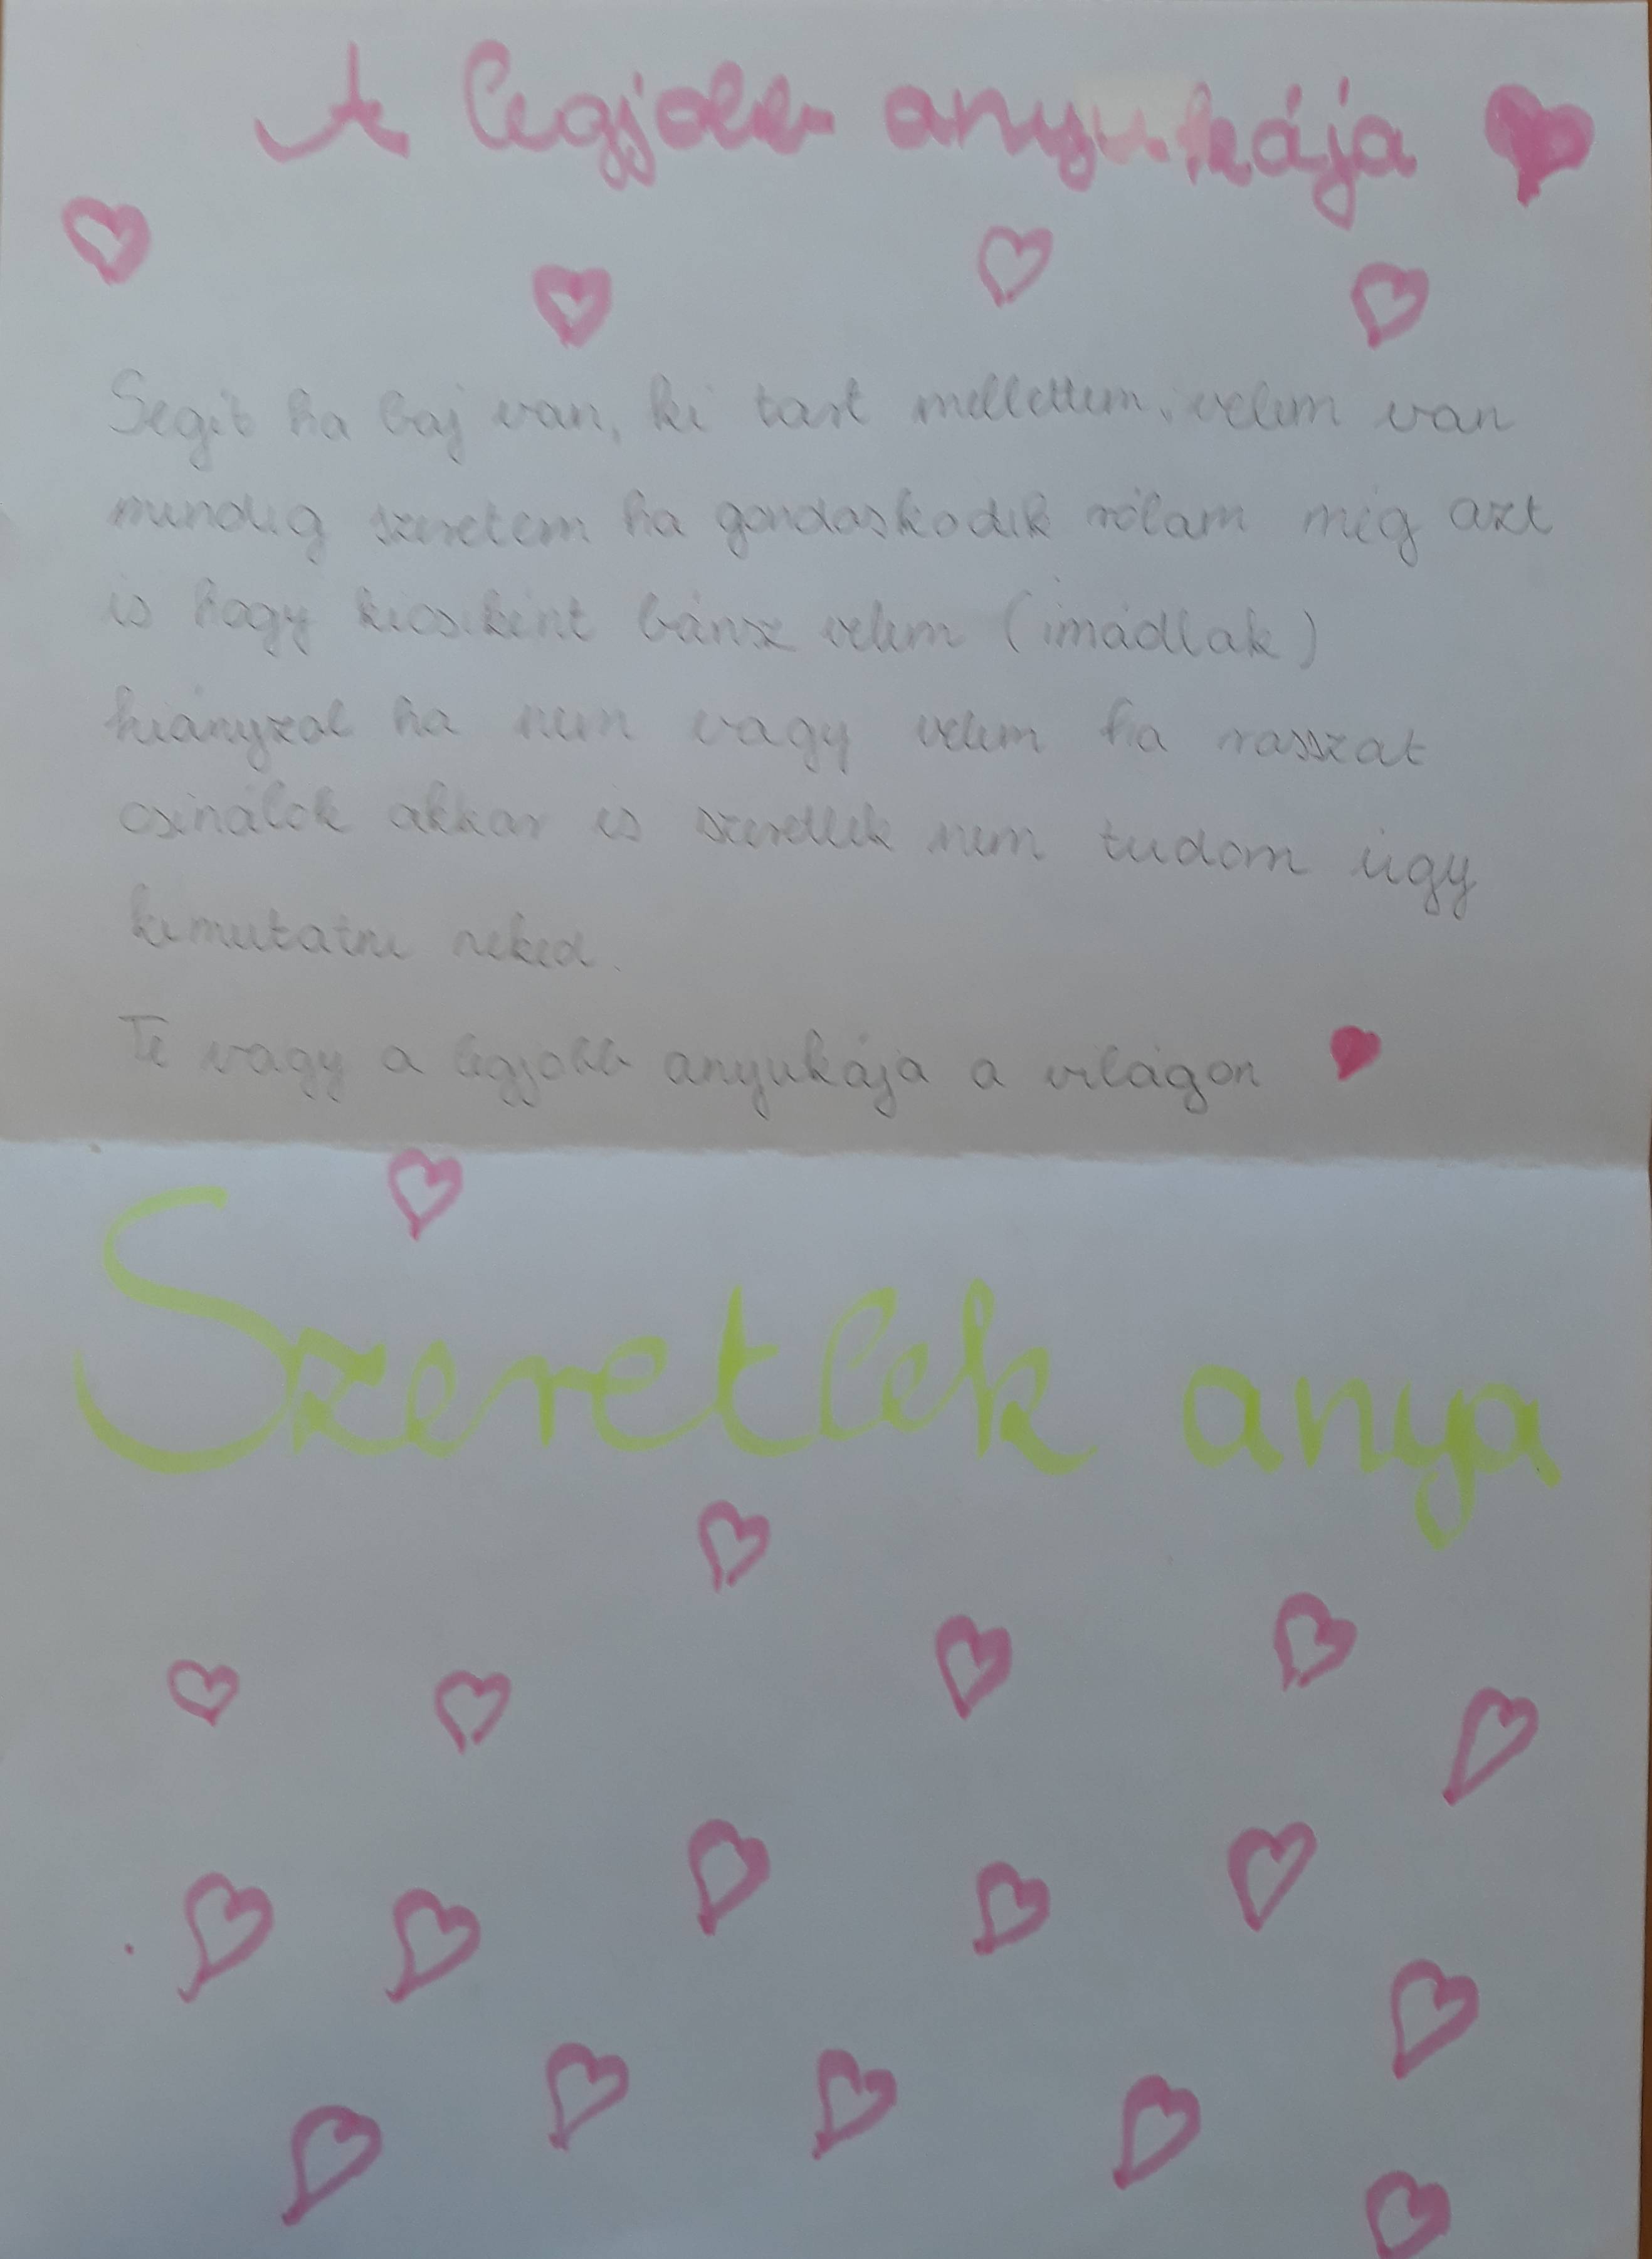 A legjobb anyukája
Segít ha baj van, ki tart mellettem, velem van
mindig szeretem ha gondoskodik rólam még azt
is hogy kicsiként bánsz velem (imádlak)
hiányzol ha nem vagy velem ha rosszat
csinálok akkor is szeretlek nem tudom úgy
kimutatni neked.
Te vagy a legjobb anyukája a világon
Szeretlek anya